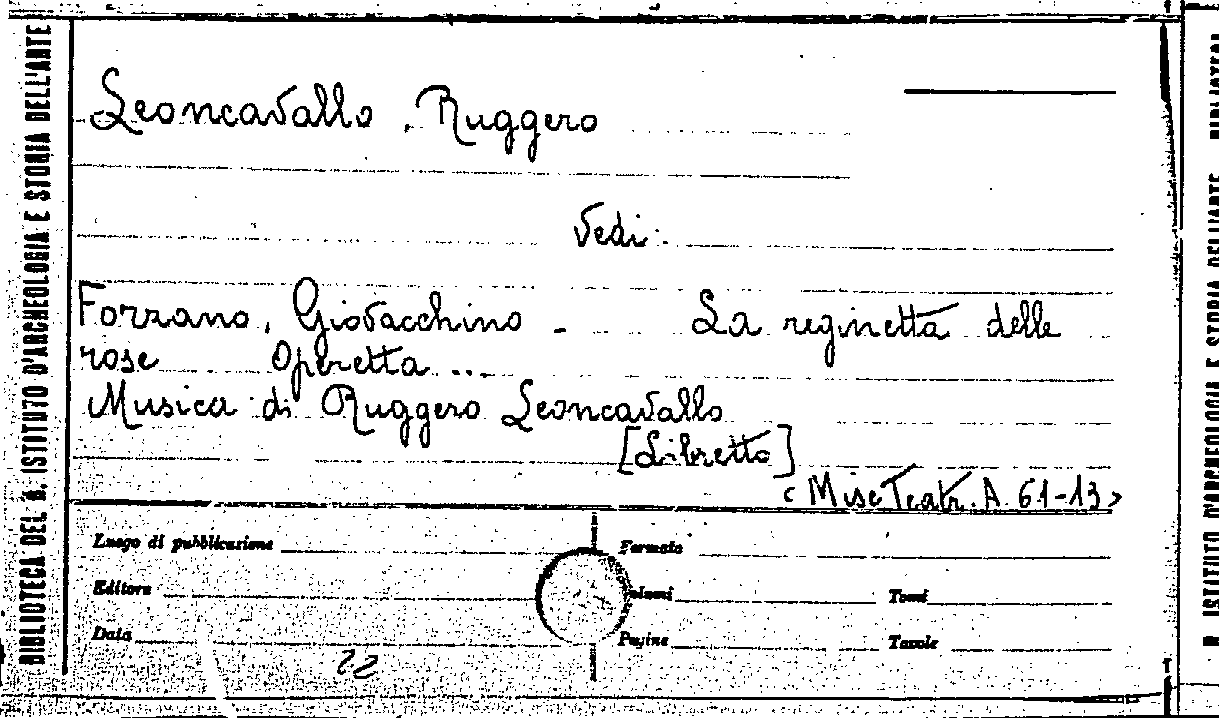 BIBLIOTECA DEL R. ISTITUTO D'ARCHEOLOGIA E STORIA DELL'ARTE
Leoncavallo, Ruggero
Vedi:
Forzano, Giovacchino - La reginetta delle
rose Operetta ...
Musica di Ruggero Leoncavallo
[Libretto]
< Misc Teatr. A. 61-13 >
Luogo di pubblicazione Formato
Editore Volumi Tomi
Data Pagine Tavole
22
ISTITUTO D'ARCHEOLOGIA E STORIA DELL'ARTE